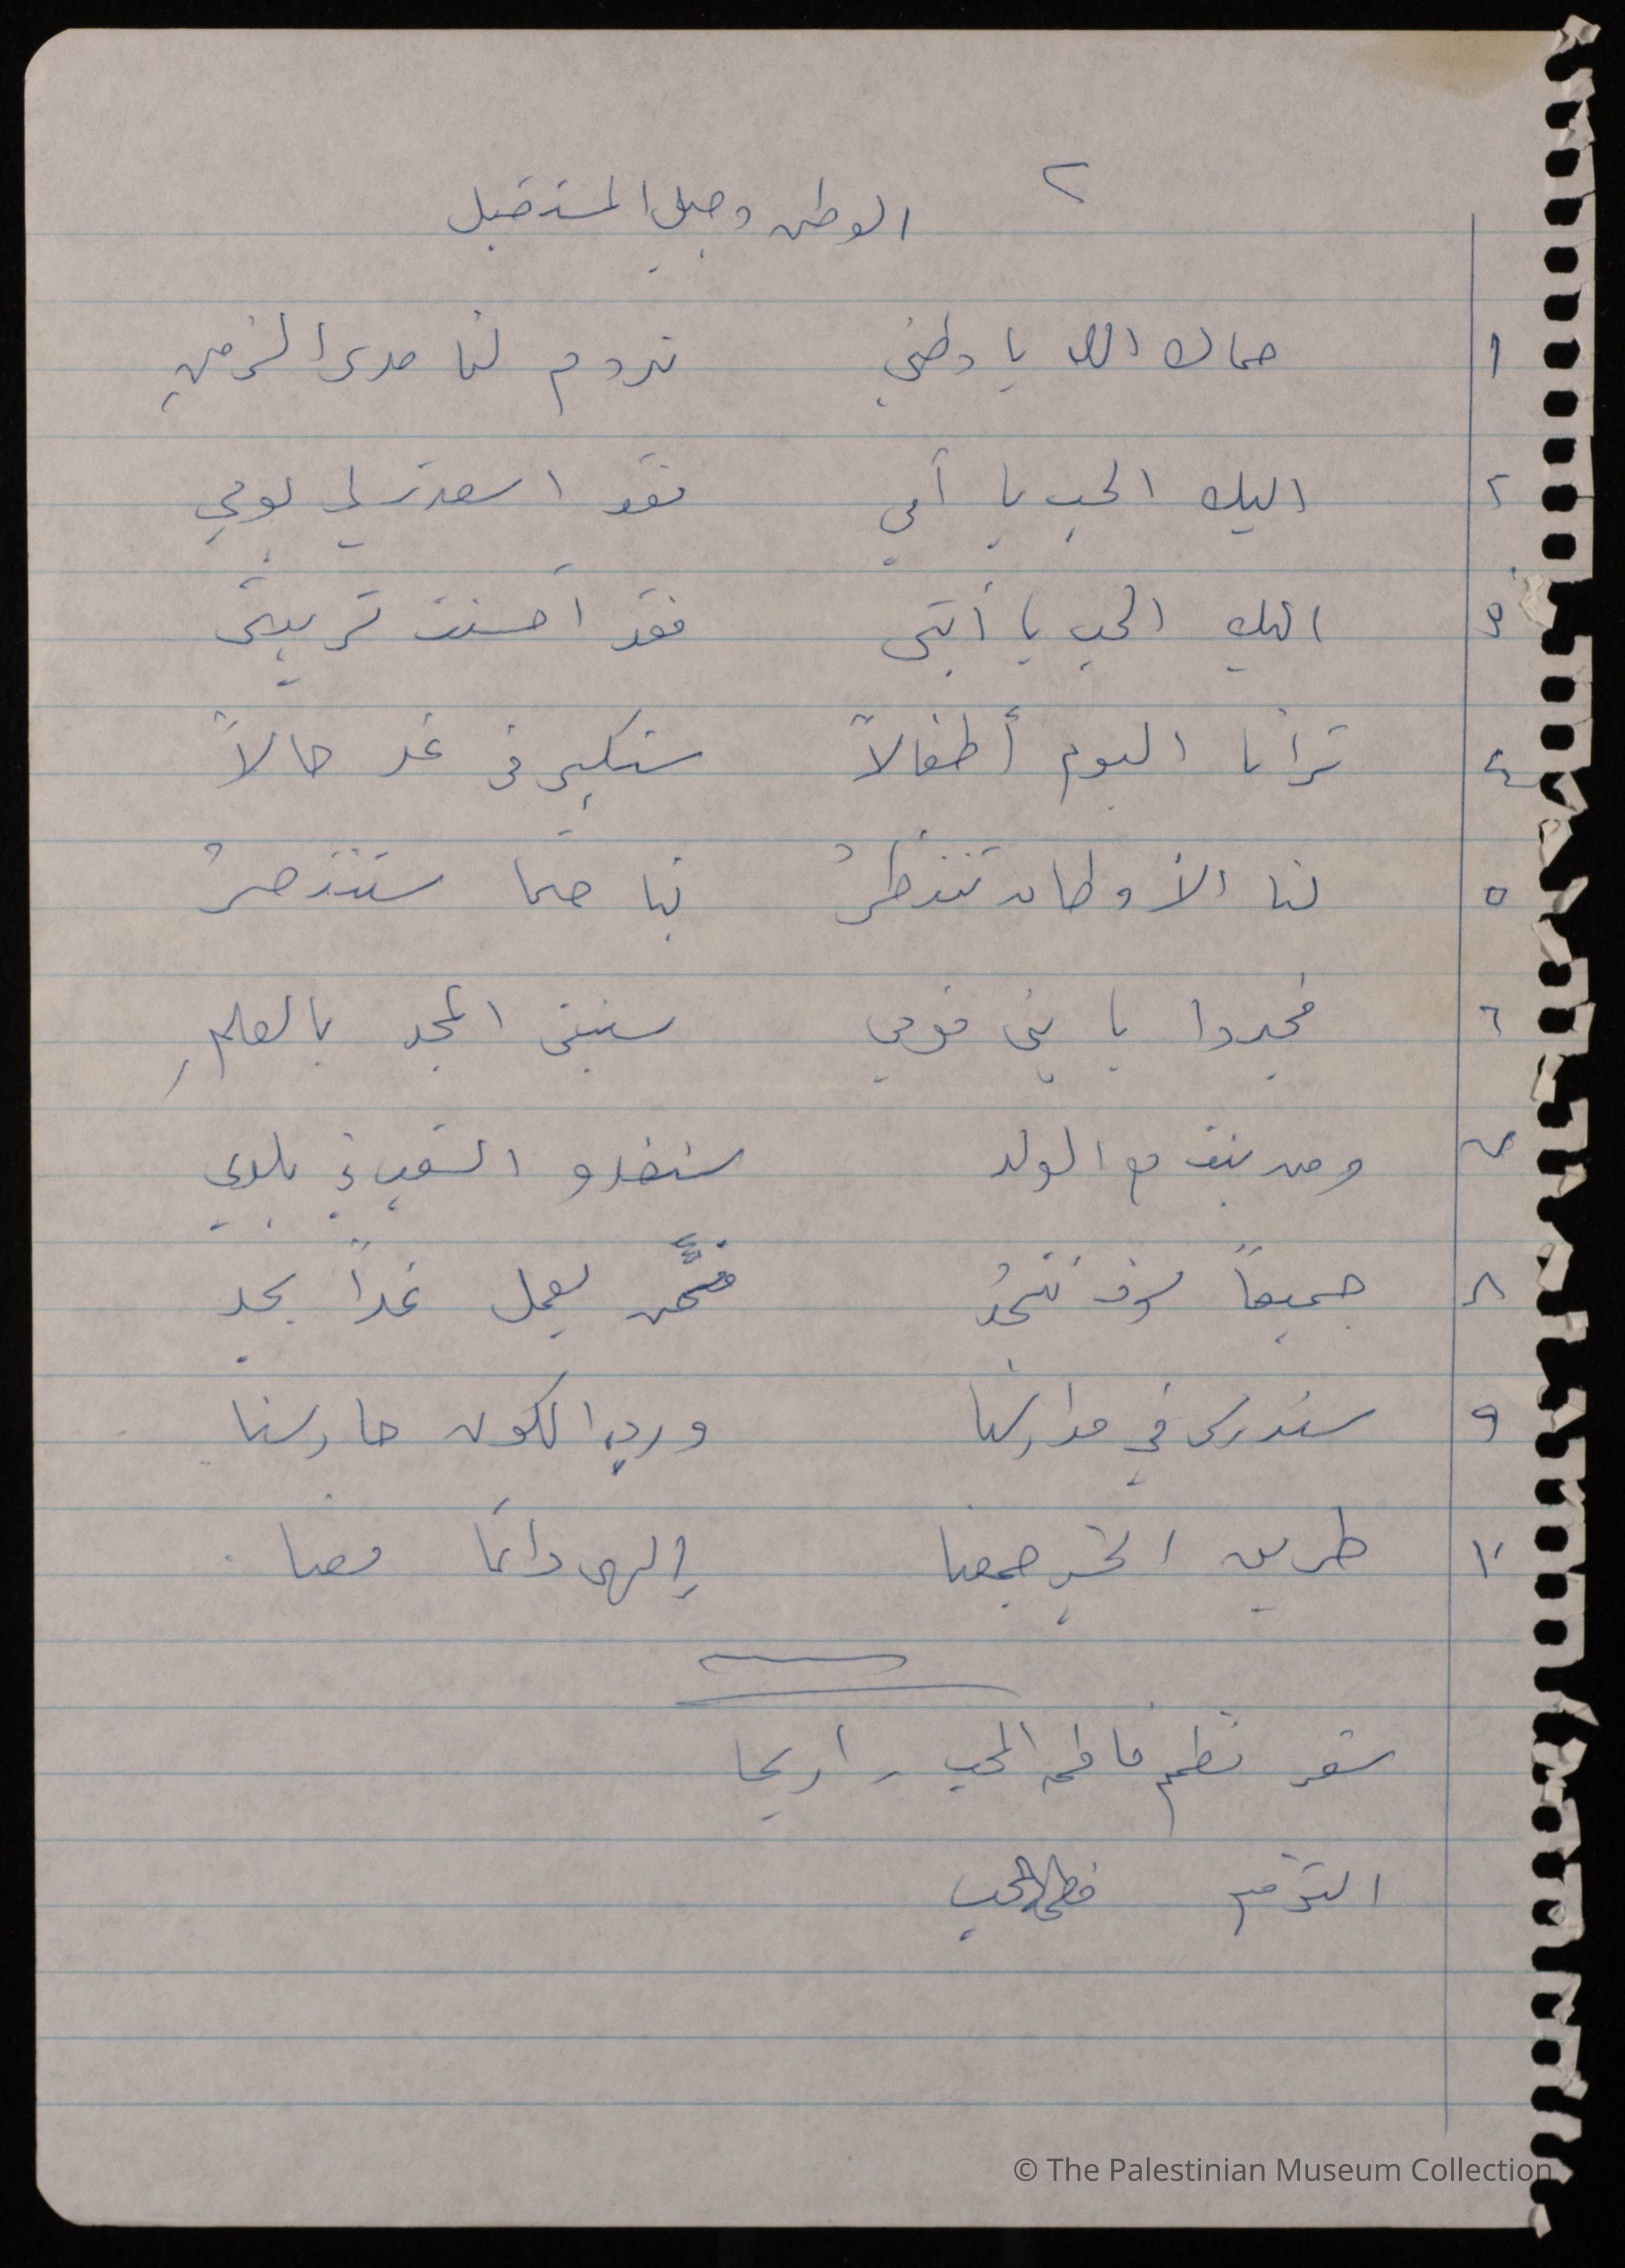 ٢
الوطن وجيل المستقبل
١ حماك الله يا وطني تدوم لنا مدى الزمنِ
٢ اليك الحب يا أمي فقد اسعدتِ لي يومي
٣ اليك الحب يا أبتي فقد أحسنت تربيتي
٤ ترانا اليوم أطفالاً سنكبر في غد حالاً
٥ لنا الأوطان تنتظرُ بنا حتما ستنتصرُ
٦ فجدوا يا بني قومي سنبني المجد بالعلمِ
٧ ومن بنت مع الولد سنغدو الشعب في بلدي
٨ جميعاً سوف نتحدُ فمن يعمل غداً يجد
٩ سندرس في مدارسنا ورب الكون حارسنا
١٠ طريق الخير جمعنا إلهي دائما معنا
شعر نظم فاطمه المحب - اريحا
التوقيع
© The Palestinian Museum Collection